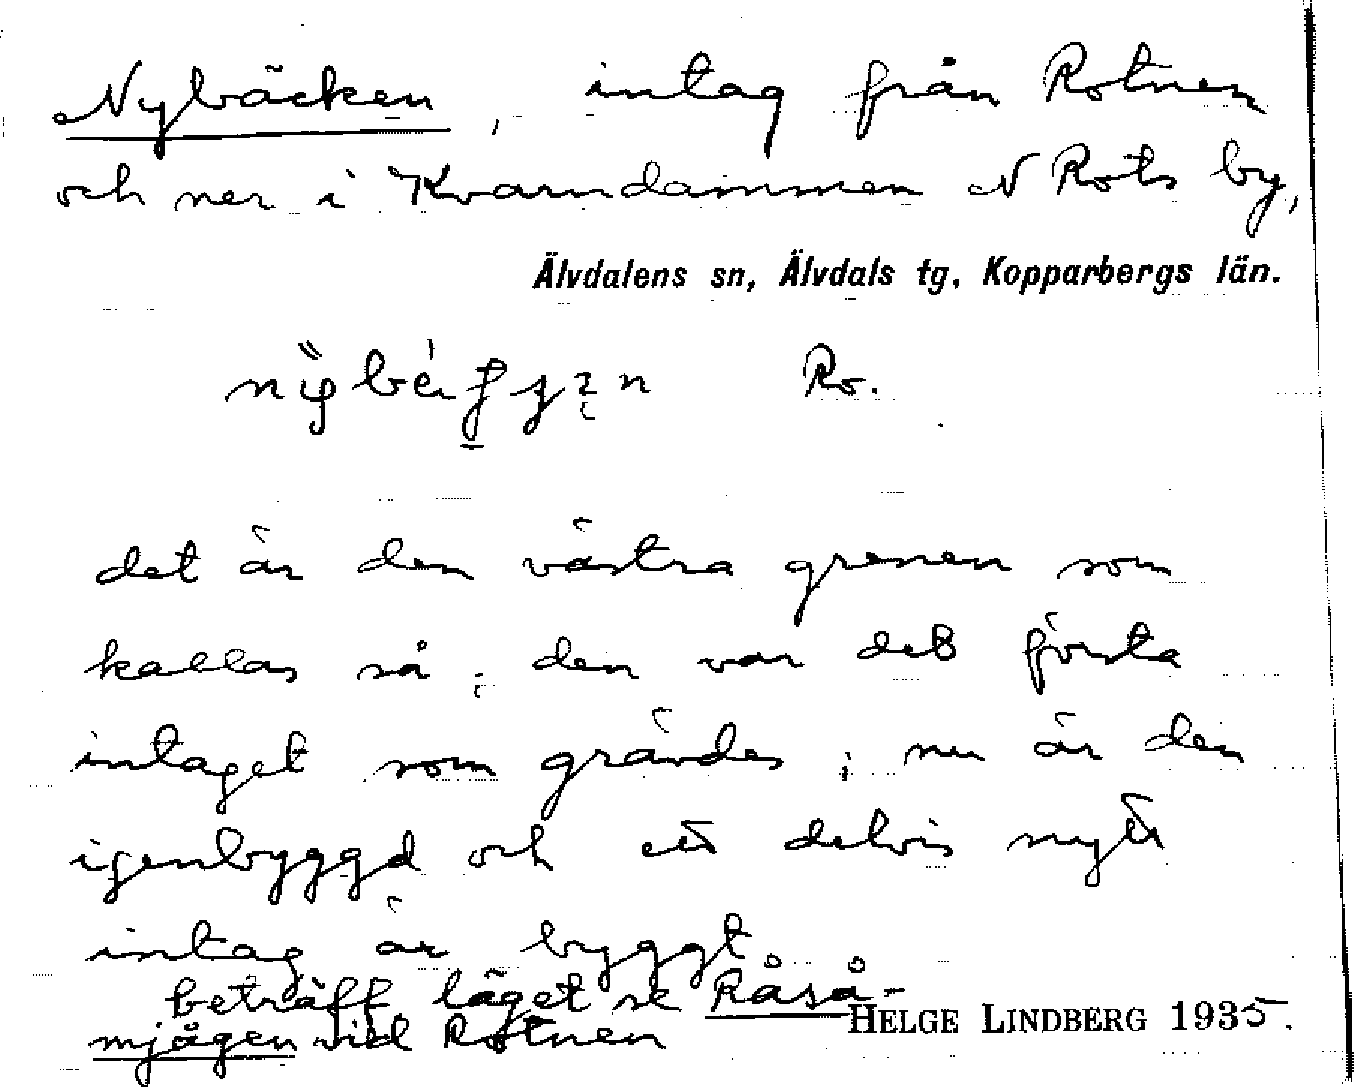 Nybäcken, intag från Rotnen
och ner i Kvarndammen N Rots by,
Älvdalens sn, Älvdals tg, Kopparbergs län.
Ro.
det är den västra grenen som
kallas så; den var det första
intaget som grävdes; nu är den
igenbyggd och ett delvis nytt
intag är byggt
beträff läget se Råså-
mjågen vid Rotnen
HELGE LINDBERG 1935.